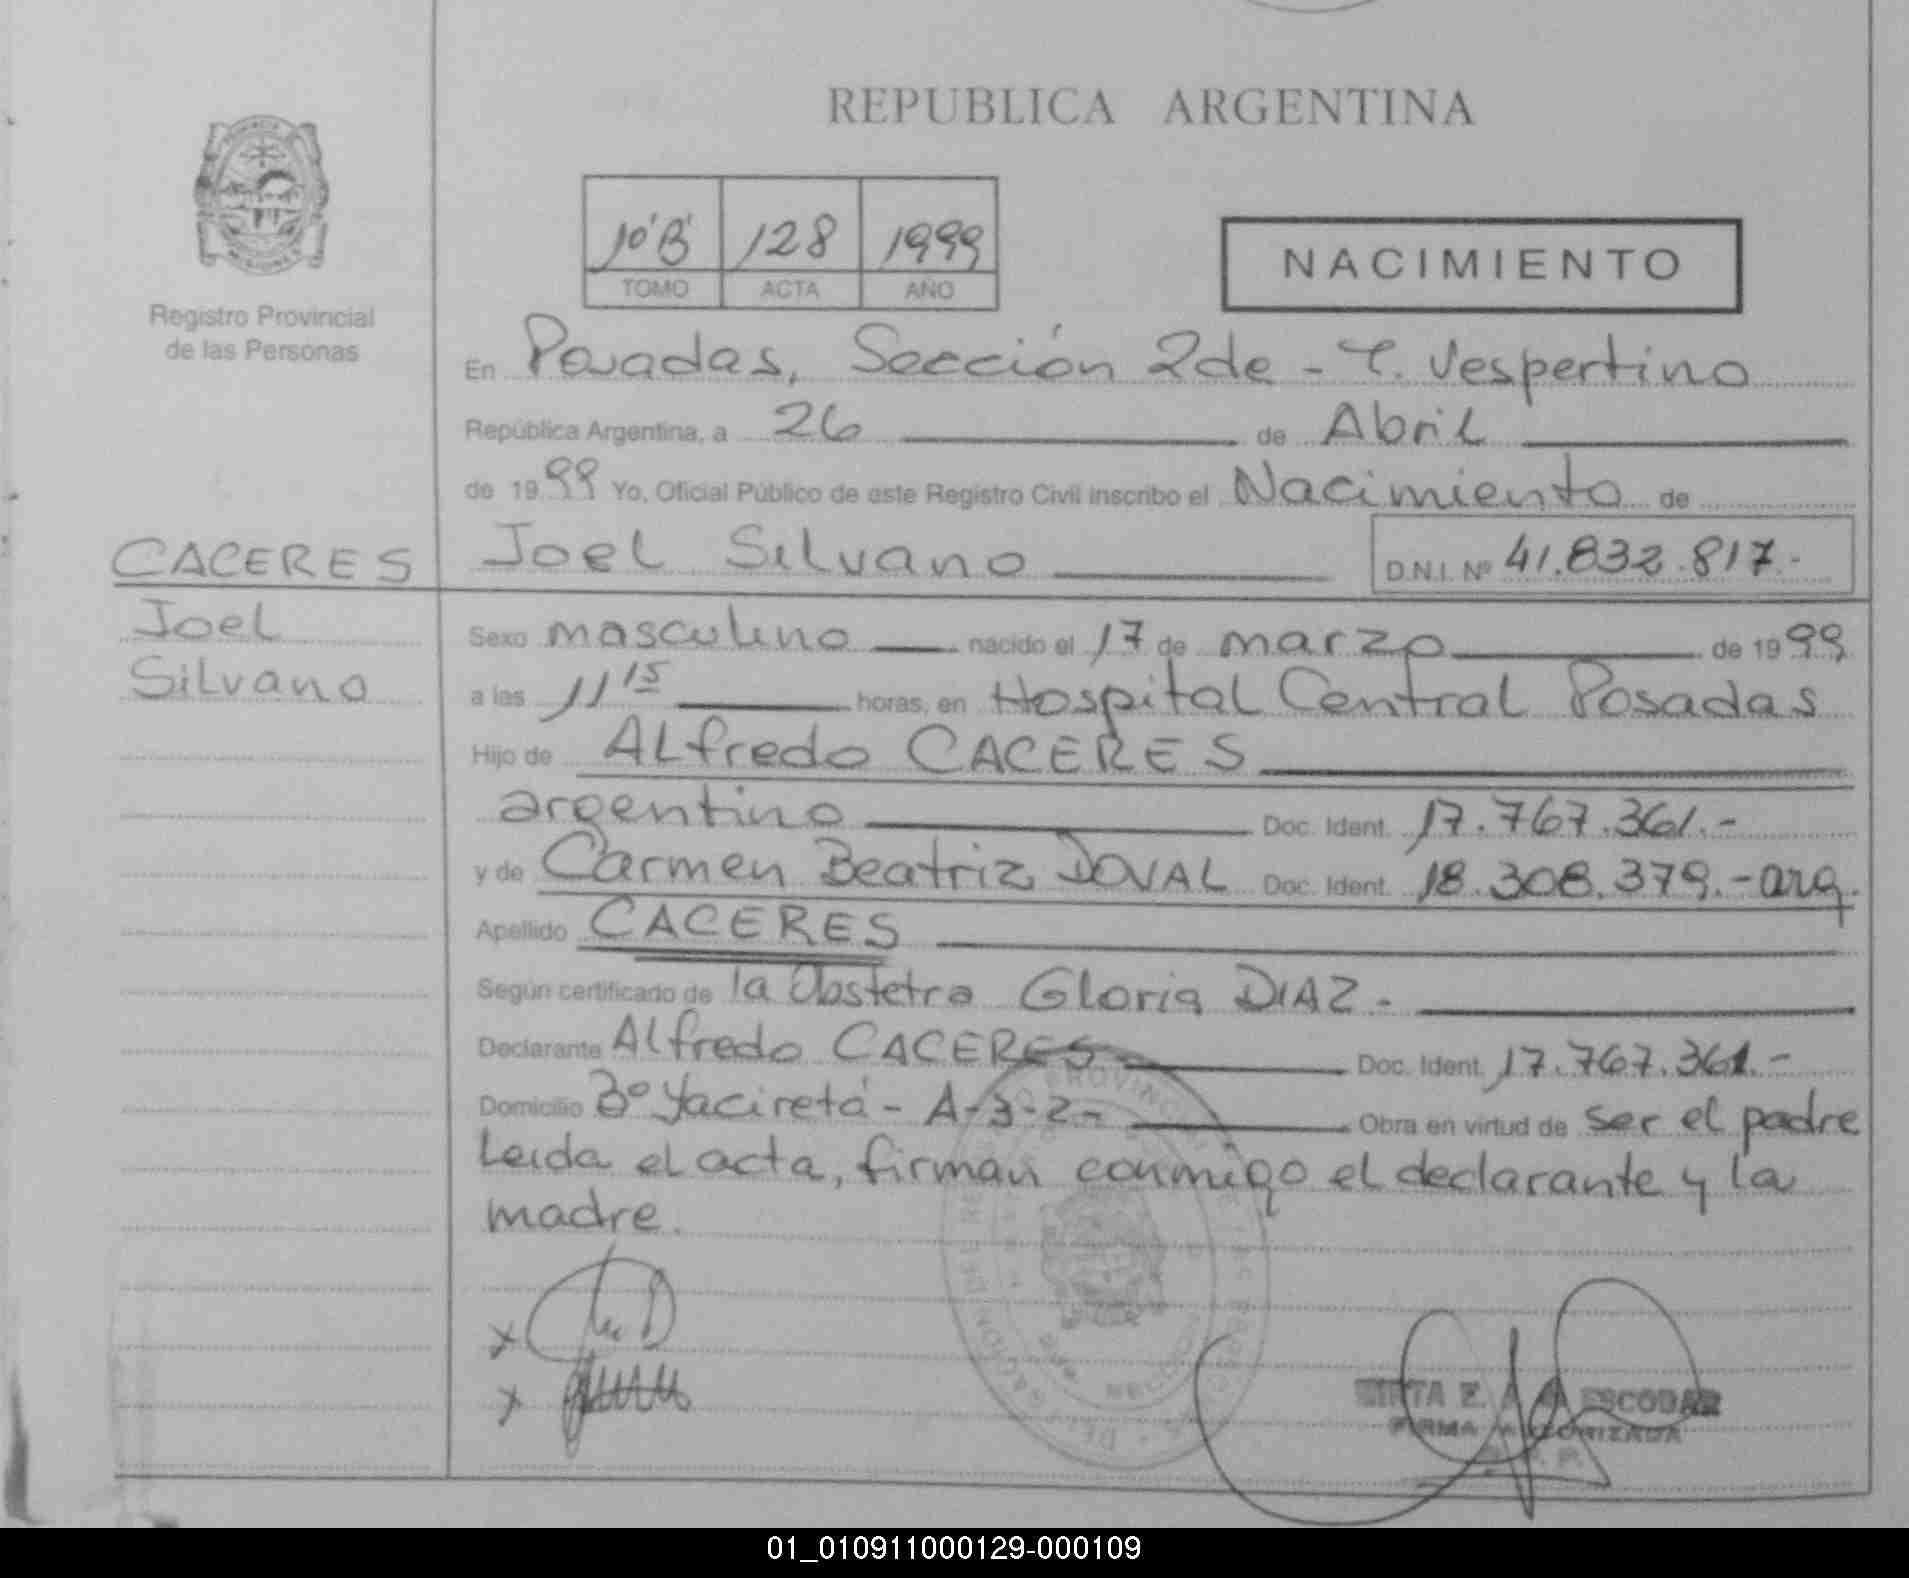 REPUBLICA ARGENTINA
10'B' 128 1999
TOMO ACTA AÑO
NACIMIENTO
Registro Provincial
de las Personas
En Posadas, Sección 2da - T. Vespertino
República Argentina, a 26 de Abril
de 1999 Yo, Oficial Público de este Registro Civil inscribo el Nacimiento de
CACERES Joel Silvano D.N.I. Nº 41.832.817.-
Joel
Silvano
Sexo masculino nacido el 17 de marzo de 1999
a las 11 15 horas, en Hospital Central Posadas
Hijo de Alfredo CACERES
argentino Doc. Ident. 17.767.361.-
y de Carmen Beatriz DOVAL Doc. Ident. 18.308.379.- arg.
Apellido CACERES
Según certificado de la Obstetra Gloria DIAZ.-
Declarante Alfredo CACERES Doc. Ident. 17.767.361.-
Domicilio Bº Yaciretá - A-3-2- Obra en virtud de ser el padre
Leida el acta, firman conmigo el declarante y la
madre.
ESCOBAR
FIRMA AUTORIZADA
01_010911000129-000109